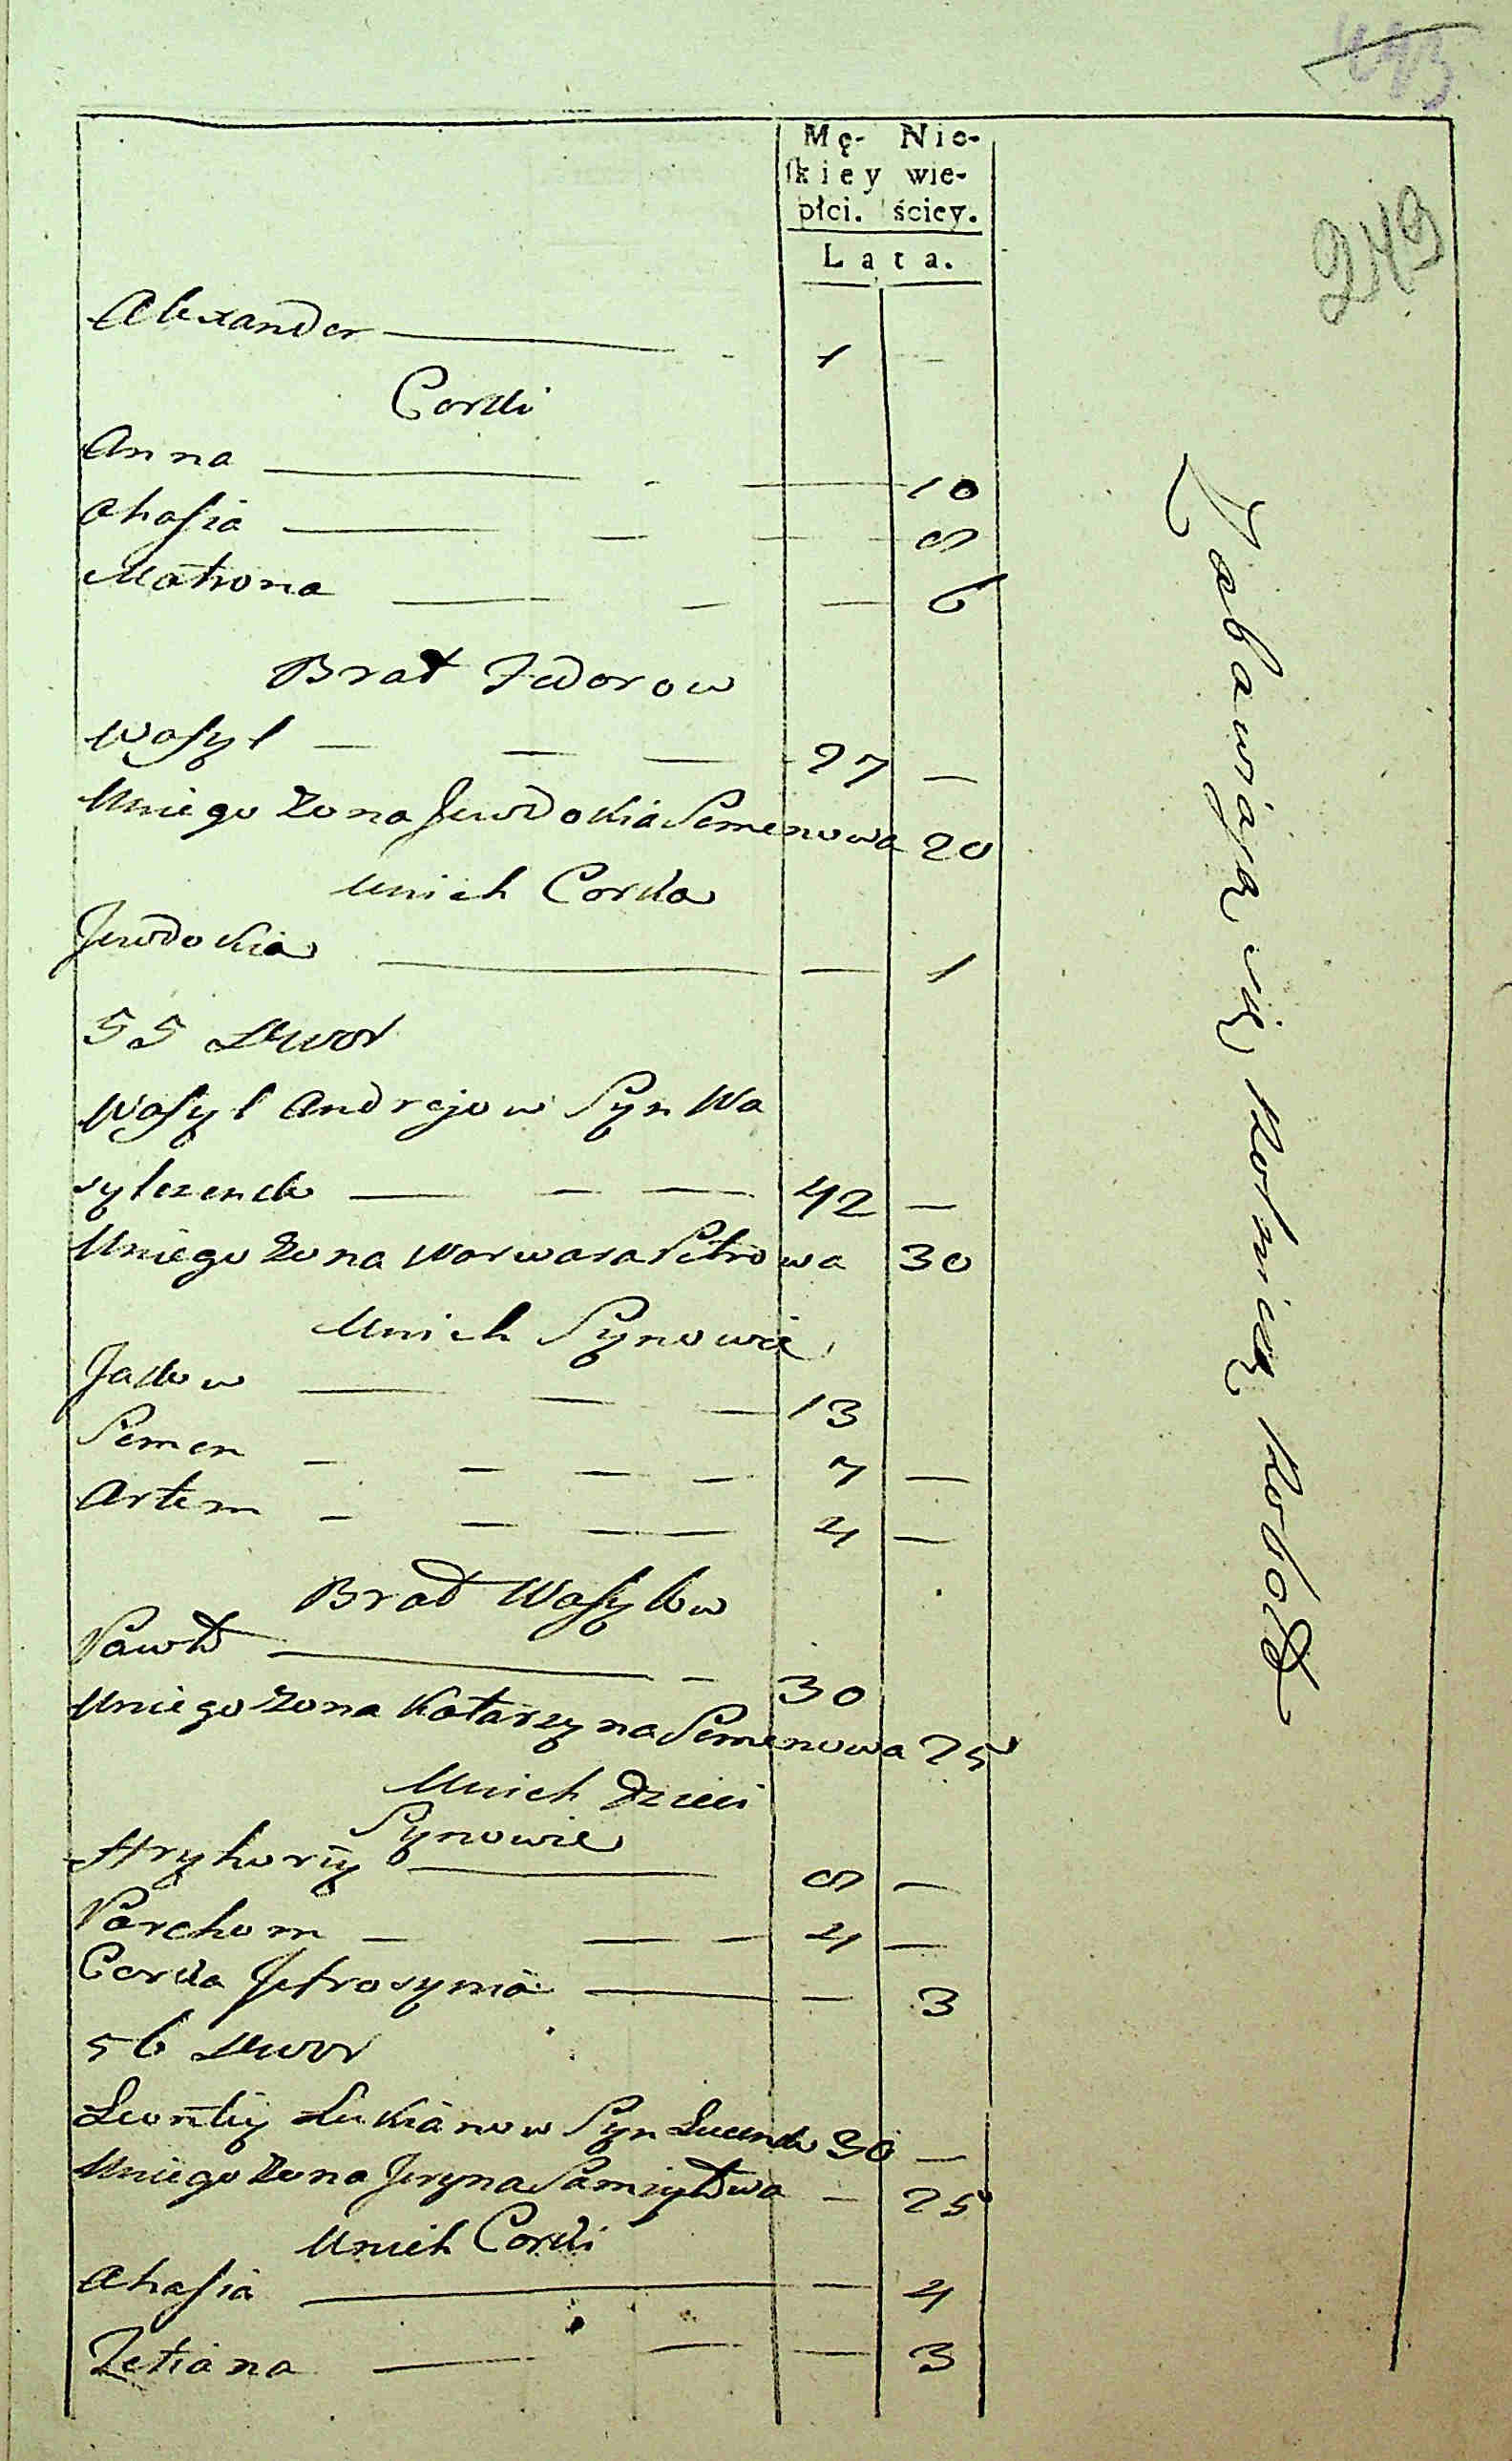 249
Mę- Nie-
skiey wie-
płci. ściey.
Lata.
Alexander — 1 —
Corki
Anna — 10
Ahafia — 8
Matrona — 6
Brat Fedorow
Wasyl — 27 —
Uniego Żona Jewdokia Semenowa 20
Unich Corka
Jewdokia — 1
55 Dwor
Wasyl Andrejow Syn Wa
sylczenko — 42 —
Uniego Żona Warwara Petrowa 30
Unich Synowie
Jakow — 13
Semen — 7 —
Artem — 4 —
Brat Wasylow
Pawło — 30
Uniego Żona Katarzyna Semenowa 25
Unich Dzieci
Synowie
Hryhorÿ — 8 —
Parchom — 4 —
Corka Jefrosynia — 3
56 Dwor
Leontiy Łukianow Syn 30 —
Uniego Żona Jryna Samiyłowa — 25
Unich Corki
Ahafia — 4
Tetiana — 3
Zabawiają się Rolniczą Robotą